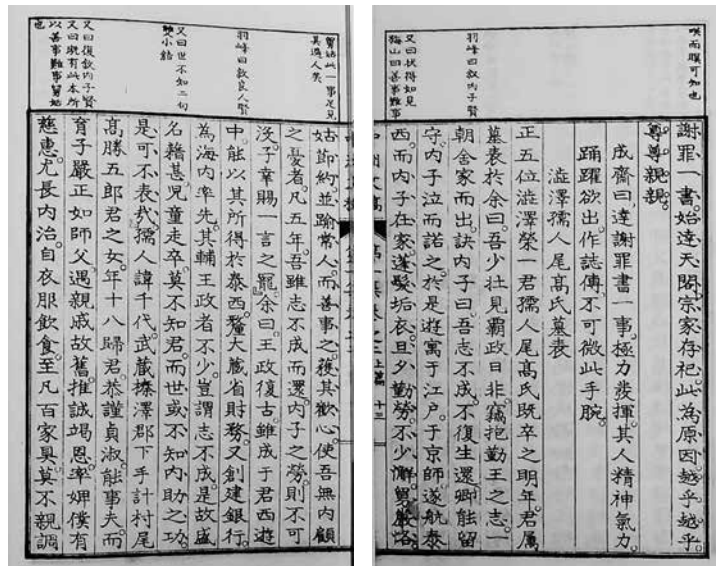 可知也
羽峰曰敘內子賢
又曰狀得如見
梅山曰善事難事
謝罪一書始達天閽宗家存祀此為原因越乎越乎
尊尊親親
成齋曰達謝罪書一事極力發揮其人精神氣力
踊躍欲出作誌傳不可微此手腕
澁澤孺人尾高氏墓表
正五位澁澤榮一君孺人尾高氏既卒之明年君属
墓表於余曰吾少壯見霸政日非竊抱勤王之志一
朝舍家而出訣內子曰吾志不成不復生還卿能留
守內子泣而諾之於是遊寓于江戶于京師遂航泰
西而內子在家蓬髮垢衣旦夕勤勞不少懈舅嚴恪
舅姑此一事足見
其過人矣
羽峰曰敘良人賢
又曰世不知二句
雙小結
又曰復敘內子賢
又曰既有此本所
以善事難事舅姑
也
姑節約並踰常人而善事之獲其歡心使吾無內顧
之憂者凡五年吾雖志不成而還內子之勞則不可
沒子幸賜一言之寵余曰王政復古雖成于君西遊
中能以其所得於泰西釐大藏省財務又創建銀行
為海內率先其輔王政者不少豈謂志不成是故盛
名籍甚兒童走卒莫不知君而世或不知內助之功
是可不表哉孺人諱千代武藏榛澤郡下手計村尾
高勝五郎君之女年十八歸君恭謹貞淑能事夫而
育子嚴正如師父遇親戚故舊推誠竭恩率婢僕有
慈惠尤長內治自衣服飲食至凡百家具莫不親調